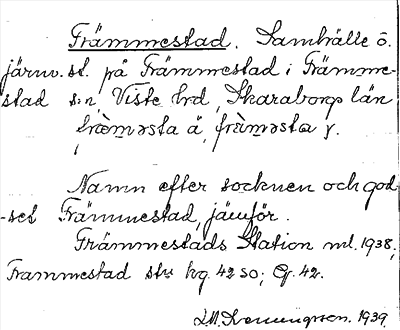 Främmestad. Samhälle ö.
järnv.st. på Främmestad i Främme-
stad s:n, Viste hrd, Skaraborgs län
främəsta ä, främəsta y.
Namn efter socknen och god-
-set Främmestad, jämför.
Främmestads Station ml. 1938,
Frammestad stn kg. 42 so; Cg. 42.
1939